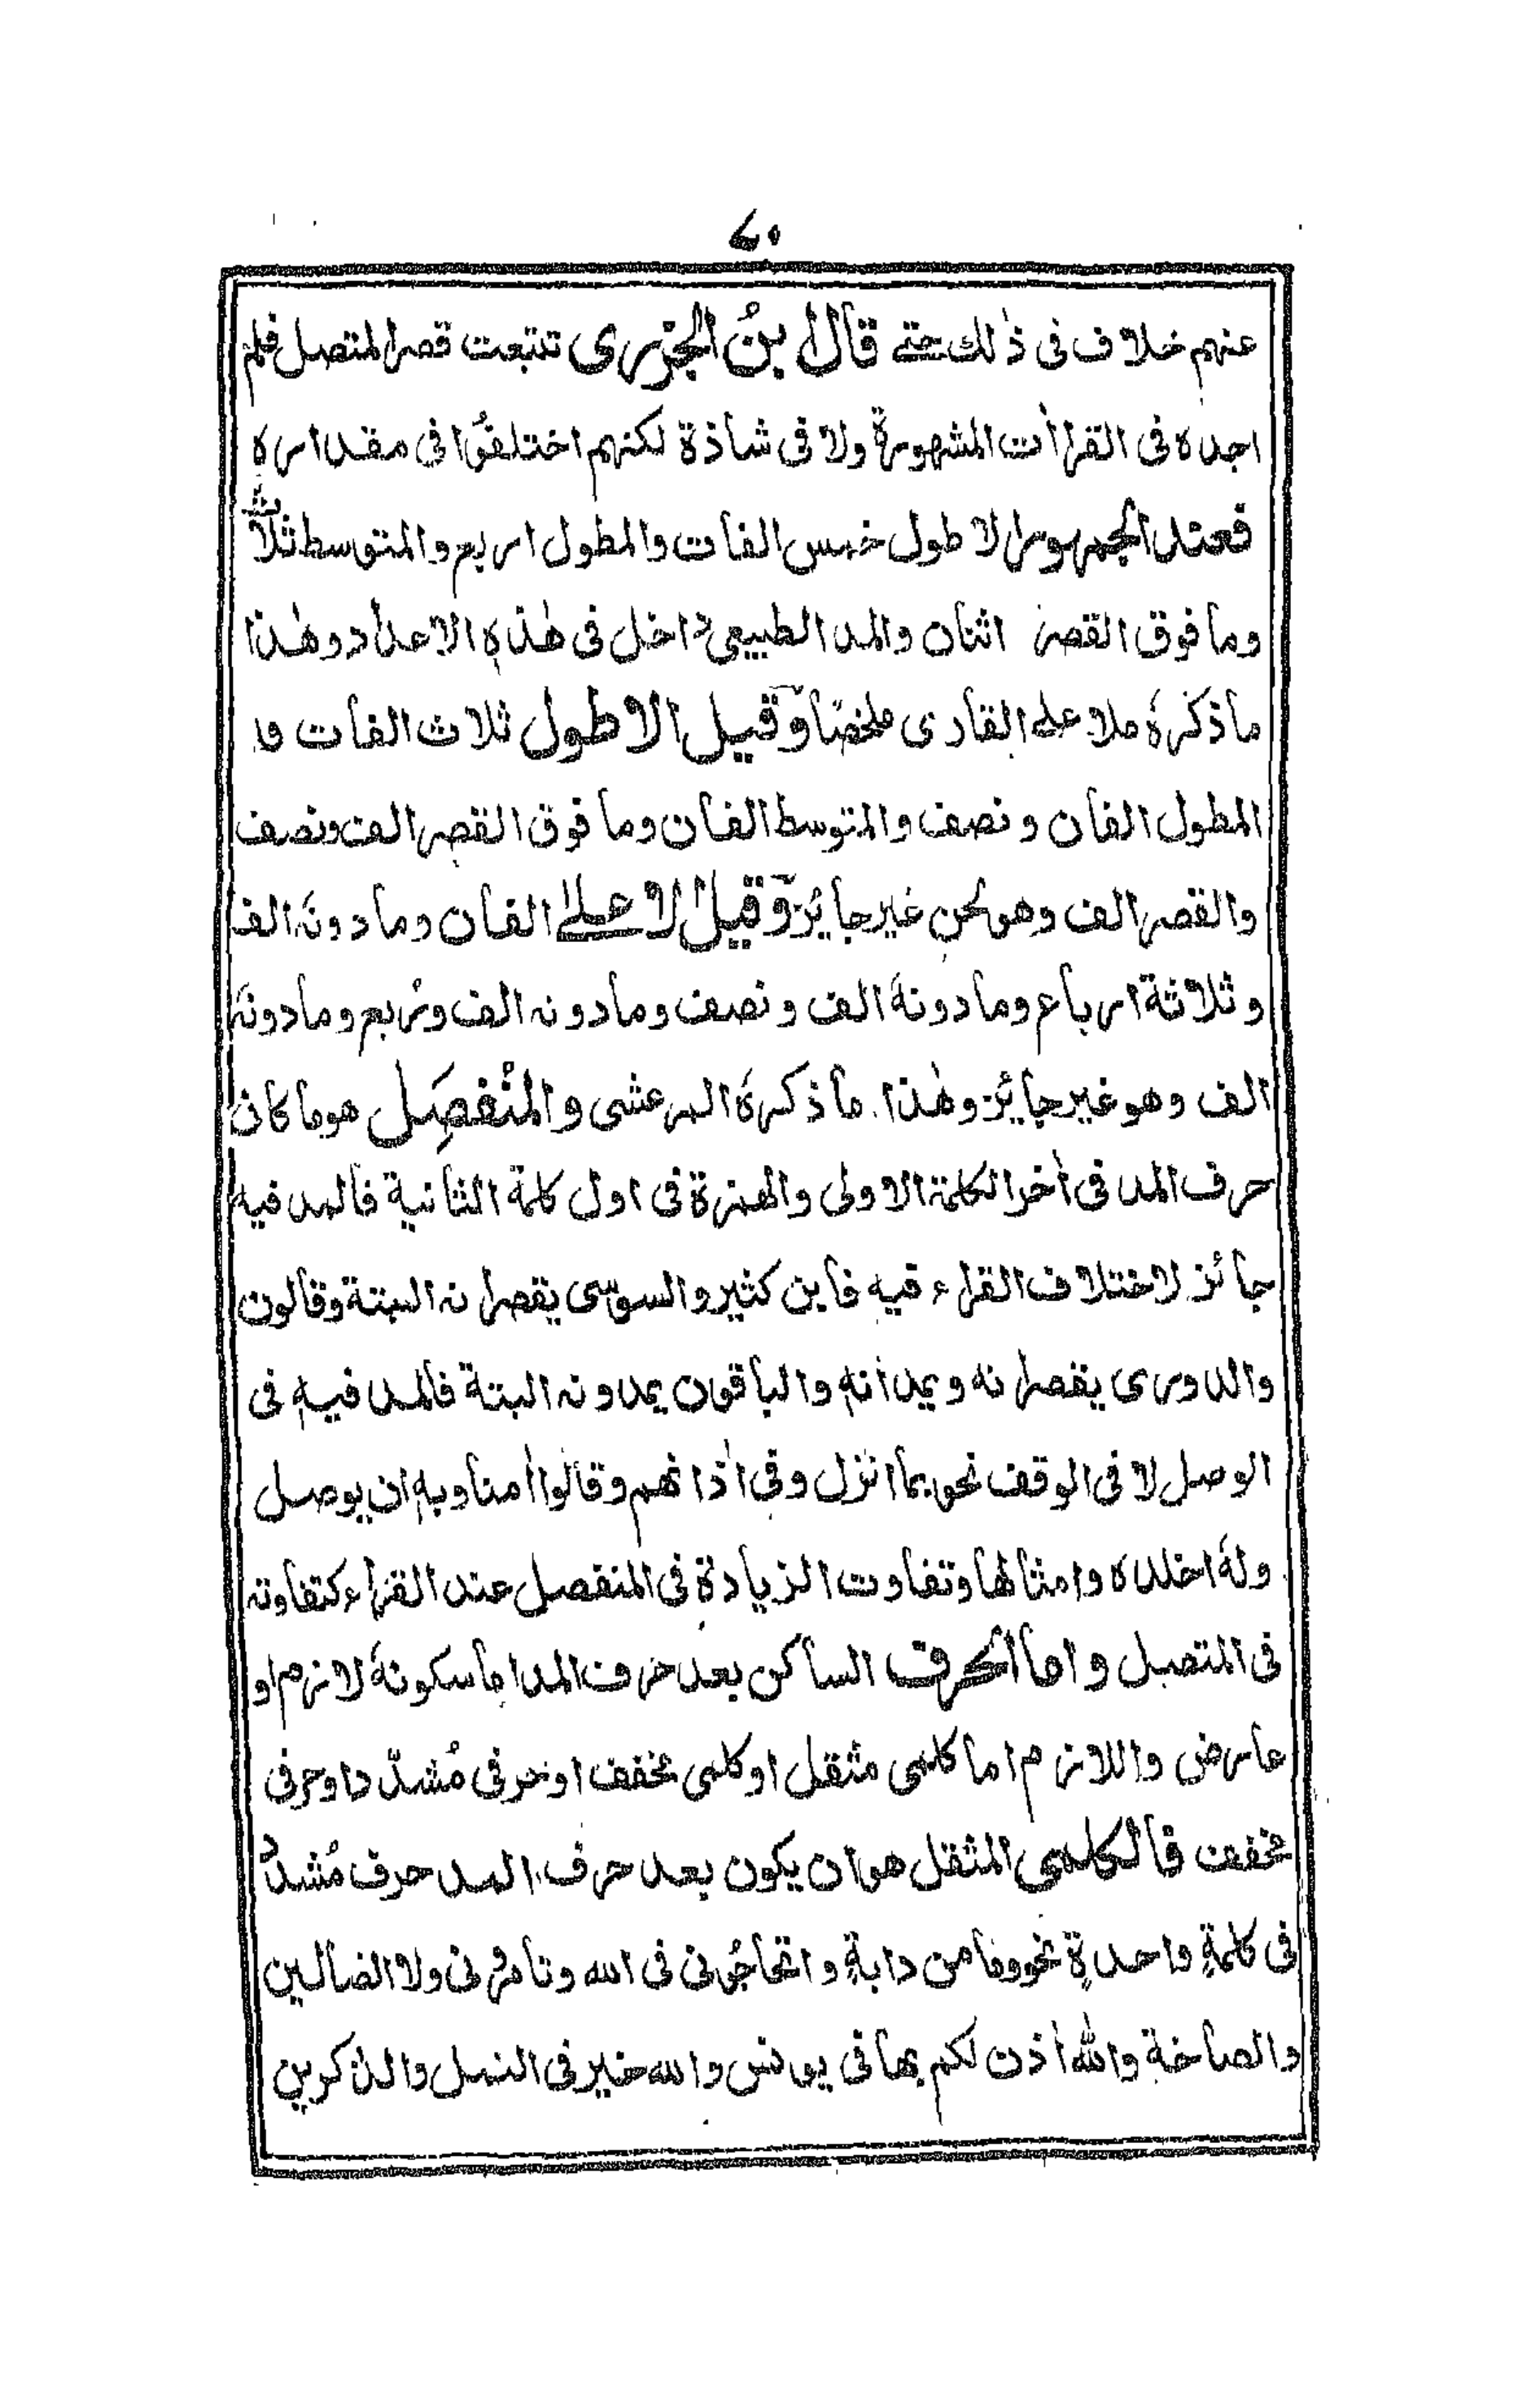 ٤٠
عنهم خلاف فى ذٰلك حتے قال ابنُ الجزرى تتبعت قصر المتصل فلم
اجده فى القراأت المشهورة ولا فى شاذة لكنهم اختلفوا فى مقداره
فعند الجمهور الاطول خمس الفات والمطول اربع والمتوسط ثلاث
وما فوق القصر اثنان والمد الطبيعى داخل فى هٰذه الاعداد وهٰذا
ما ذكرهٗ ملا على القارى ملخصًا وقيل الاطول ثلاث الفات و
المطول الفان ونصف والمتوسط الفان وما فوق القصر الف ونصف
والقصر الف وهو لحن غير جائز وقيل الاعلےٰ الفان وما دونهٗ الف
وثلاثة ارباع وما دونهٗ الف ونصف وما دونه الف وربع وما دونهٗ
الف وهو غير جائز وهٰذا ما ذكرهٗ المرعشى والمُنْفصِل هو ما كان
حرف المد فى اٰخر الكلمة الاولى والهمزة فى اول كلمة الثانية فالمد فيه
جائز لاختلاف القراء فيه فابن كثير والسوسى يقصرانه البتة وقالون
والدورى يقصرانه ويمدانهٖ والباقون يمدونه البتة فالمد فيهٖ فى
الوصل لا فى الوقف نحو بما انزل وفى اٰذانهم وقالوا اٰمنا وبهٖ ان يوصل
ولهٗ اخلده وامثالها وتفاوت الزيادة فى المنفصل عند القراء كتفاوته
فى المتصل واما الحرف الساكن بعد حرف المد اما سكونهٗ لازم او
عارض واللازم اما كلمى مثقل او كلمى مخفف او حرفى مُشدّد او حرفى
مخفف فالكلمى المثقل هو ان يكون بعد حرف المد حرف مُشددٌ
فى كلمةٍ واحدةٍ نحو وما من دابةٍ واتحاجُونى فى الله وتامرونى ولا الضالين
والصاخة واٰلله اذن لكم بها فى يونس واٰلله خير فى النمل واٰلذكرين